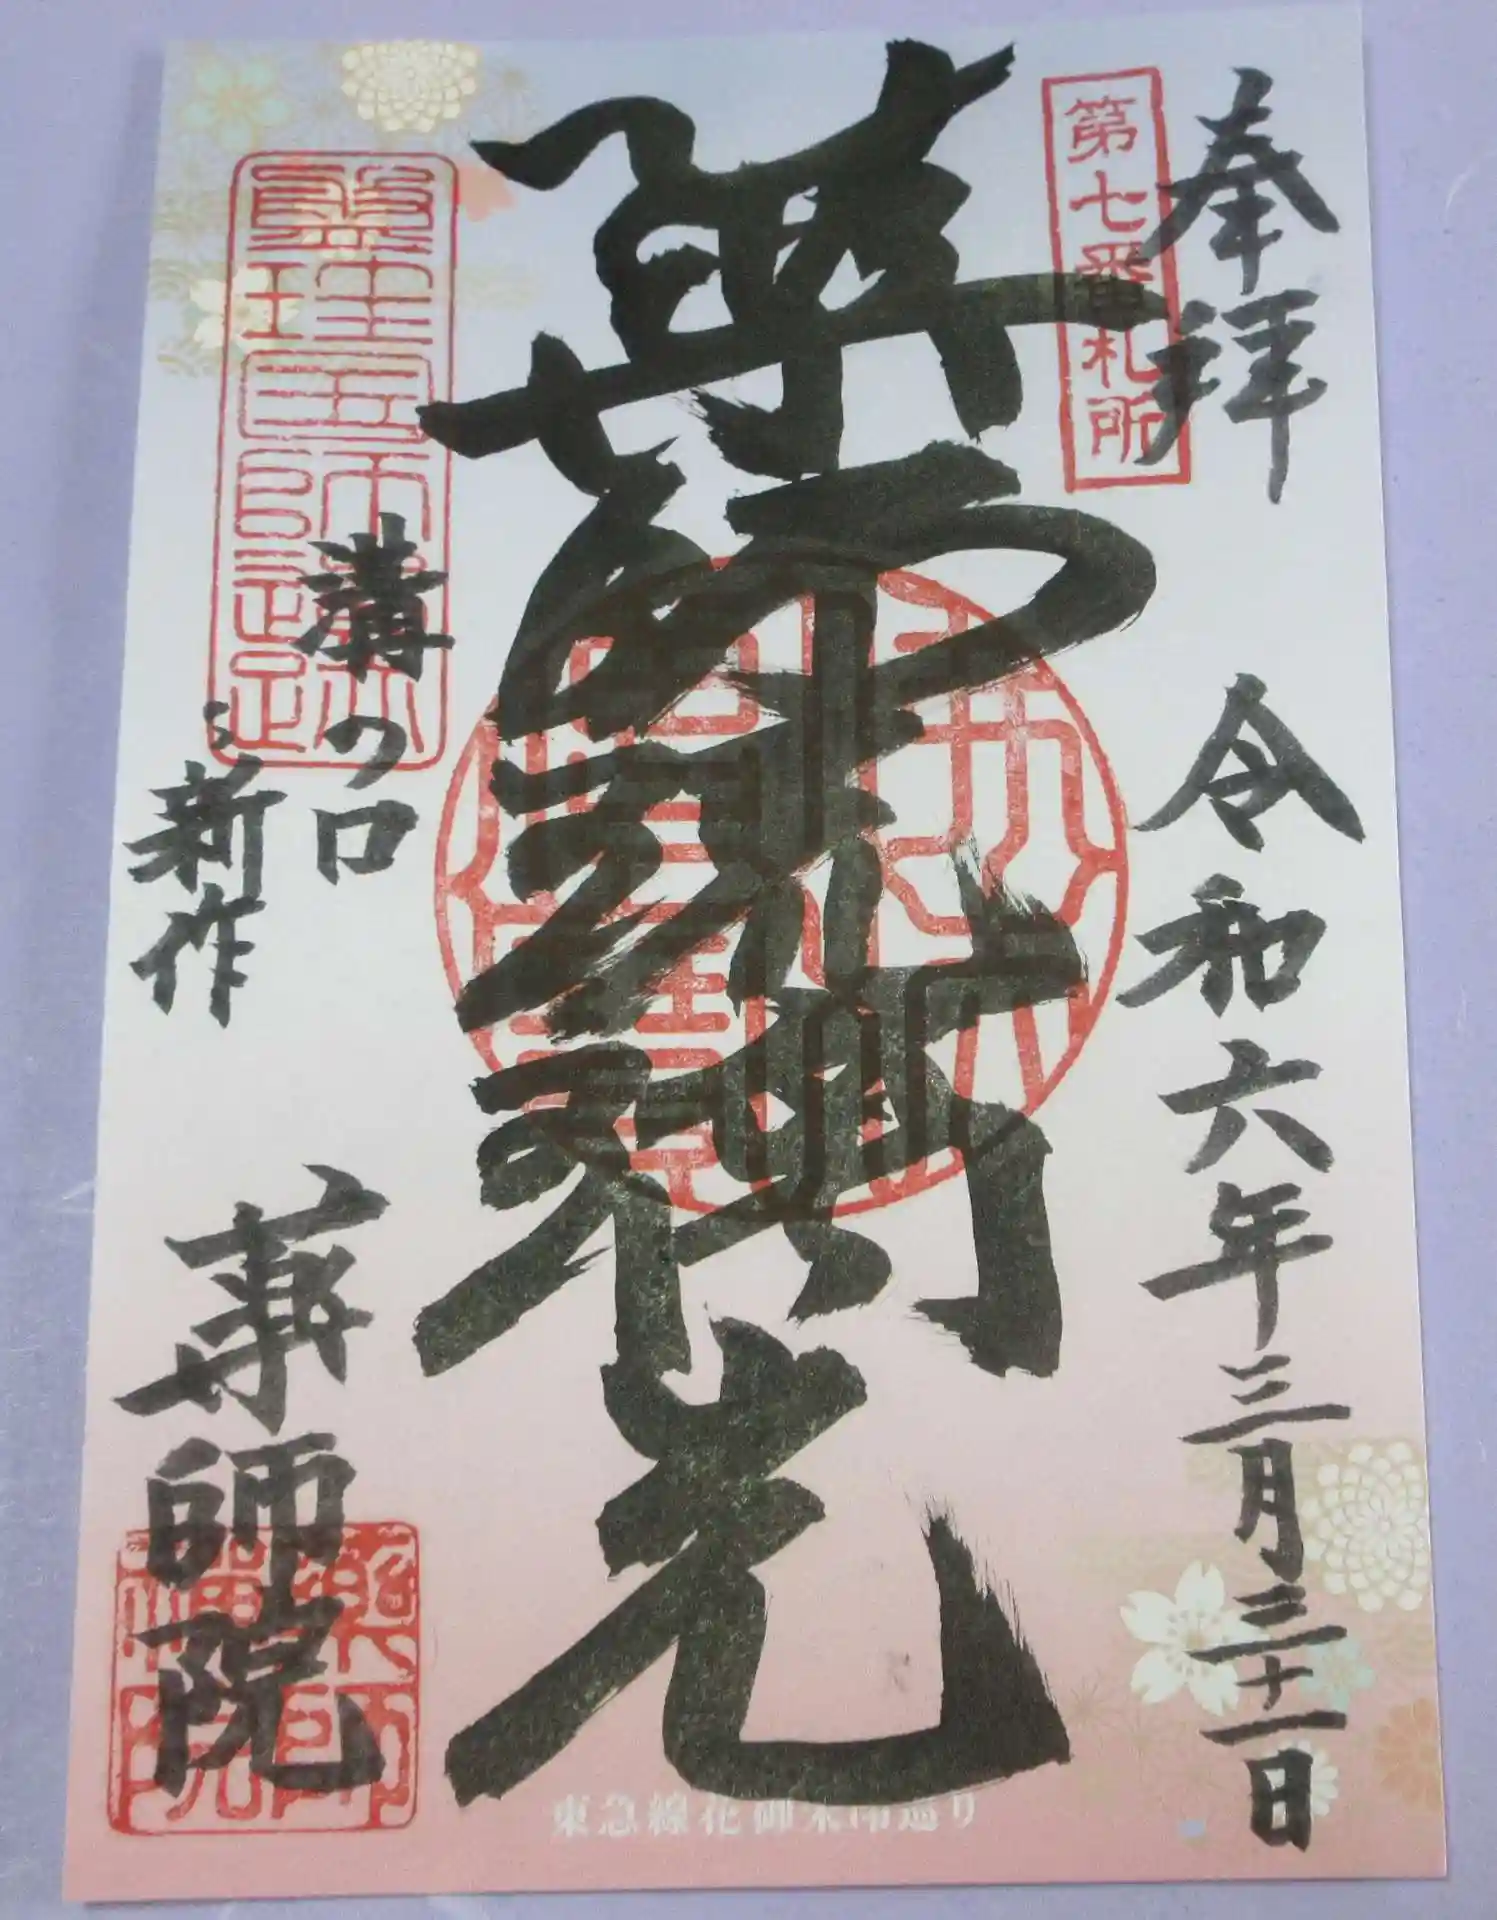 奉拝
令和六年三月三十一日
第七番札所
薬師瑠璃光
溝の口
新作
薬師院
東急線花御朱印巡り